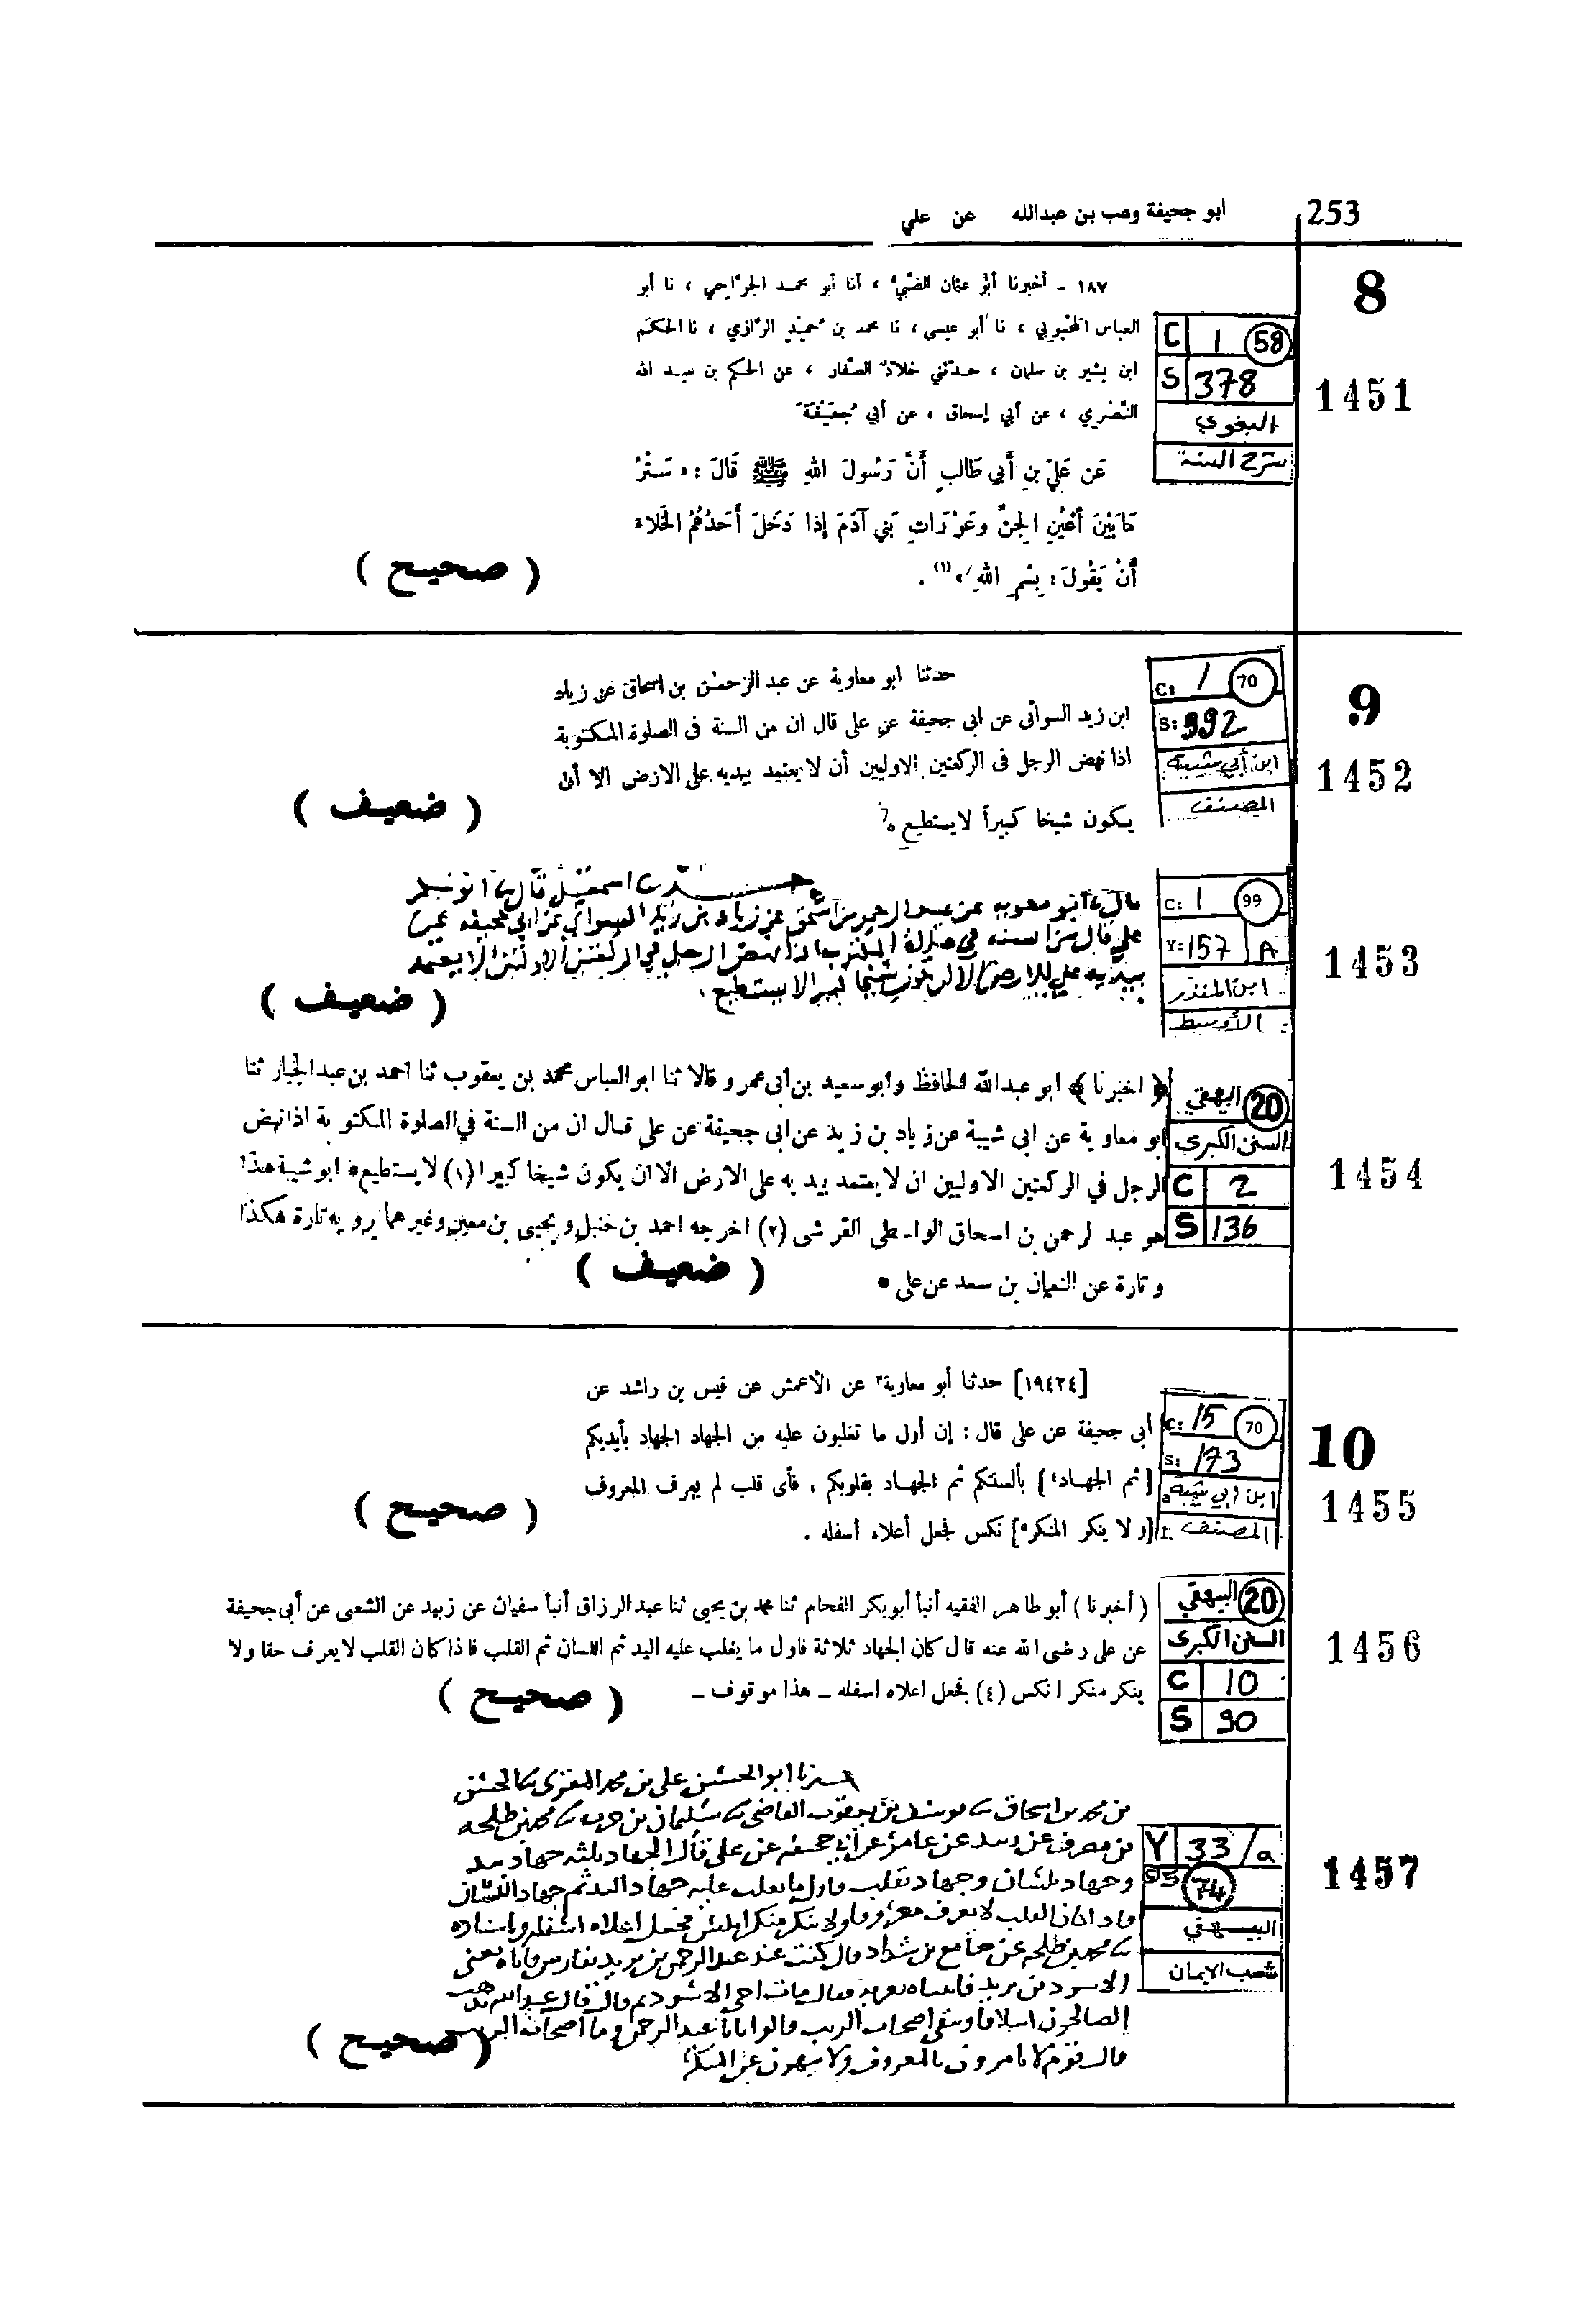 253
ابو جحيفة وهب بن عبدالله عن علي
8
C 1 58
S 378
البغوي
شرح السنة
1451
١٨٧ - أخبرنا أبو عثمان الضبي ، أنا أبو محمد الجراحي ، نا أبو
العباس المحبوبي ، نا أبو عيسى ، نا محمد بن حميد الرازي ، نا الحكم
ابن بشير بن سلمان ، حدثني خلاد الصفار ، عن الحكم بن عبد الله
النصري ، عن أبي إسحاق ، عن أبي جحيفة
عَن عَلِيِّ بنِ أَبي طَالبٍ أَنَّ رَسُولَ اللهِ ﷺ قَالَ : « سَتْرُ
مَابَيْنَ أَعْيُنِ الجِنِّ وَعَوْرَاتِ بَني آدَمَ إِذا دَخَلَ أَحَدُهُمُ الخَلاءَ
أَنْ يَقُولَ : بِسْمِ اللهِ » (١) .
( صحيح )
9
C: 1 70
S: 992
ابن أبي شيبة
المصنف
1452
حدثنا ابو معاوية عن عبد الرحمن بن اسحاق عن زياد
ابن زيد السوائى عن ابى جحيفة عن على قال ان من السنة فى الصلوة المكتوبة
اذا نهض الرجل فى الركعتين الاوليين أن لا يعتمد بيديه على الارض الا أن
يكون شيخا كبيرا لا يستطيع
( ضعيف )
C: 1 99
Y: 157 A
ابن المنذر
الأوسط
1453
قال ثنا ابو معوية عن عبد الرحمن بن اسحق عن زياد بن زيد السوائي عن ابي جحيفه عن
علي قال من السنه في صلاة المكتوبه اذا نهض الرجل في الركعتين الاولتين الا يعتمد
بيديه على الارض الا ان يكون شيخا كبيرا لا يستطيع .
( ضعيف )
البيهقي 20
السنن الكبرى
C 2
S 136
1454
﴿ اخبرنا ﴾ ابو عبدالله الحافظ وابو سعيد بن أبى عمرو قالا ثنا ابو العباس محمد بن يعقوب ثنا احمد بن عبد الجبار ثنا
ابو معاوية عن ابى شيبة عن زياد بن زيد عن ابى جحيفة عن على قال ان من السنة في الصلوة المكتوبة اذا نهض
الرجل في الركعتين الاوليين ان لا يعتمد بيديه على الارض الا ان يكون شيخا كبيرا (١) لا يستطيع * ابو شيبة هذا
هو عبد الرحمن بن اسحاق الواسطى القرشى (٢) اخرجه احمد بن حنبل ويحيى بن معين وغيرهما يرويه تارة هكذا
و تارة عن النعمان بن سعد عن على *
( ضعيف )
10
C: 15 70
S: 173
ابن ابي شيبة
المصنف
1455
[١٩٤٢٤] حدثنا أبو معاوية٣ عن الأعمش عن قيس بن راشد عن
أبى جحيفة عن على قال : إن أول ما تغلبون عليه من الجهاد الجهاد بأيديكم
[ثم الجهاد٤] بألسنتكم ثم الجهاد بقلوبكم ، فأى قلب لم يعرف المعروف
[و لا ينكر المنكر٥] نكس فجعل أعلاه أسفله .
( صحيح )
البيهقي 20
السنن الكبرى
C 10
S 90
1456
( أخبرنا ) أبو طاهر الفقيه أنبأ أبو بكر الفحام ثنا محمد بن يحيى ثنا عبد الرزاق أنبأ سفيان عن زبيد عن الشعبى عن أبى جحيفة
عن على رضى الله عنه قال كان الجهاد ثلاثة فاول ما يغلب عليه اليد ثم اللسان ثم القلب فاذا كان القلب لا يعرف حقا ولا
ينكر منكرا نكس (٤) فجعل اعلاه اسفله – هذا موقوف –
( صحيح )
Y 33 / a
74
البيهقي
شعب الايمان
1457
اخبرنا ابو الحسن علي بن محمد المقرى نا الحسن
بن محمد بن اسحاق نا يوسف بن يعقوب القاضي نا سليمان بن حرب نا محمد بن طلحه
بن مصرف عن زبيد عن عامر عن أبي جحيفه عن علي قال الجهاد ثلثه جهاد بيد
وجهاد بلسان وجهاد بقلب فاول ما يغلب عليه جهاد اليد ثم جهاد اللسان
فاذا كان القلب لا يعرف معروفا ولا ينكر منكرا نكس فجعل اعلاه اسفله وباسناده
نا محمد بن طلحه عن جامع بن شداد قال كنت عند عبد الرحمن بن يزيد بفارس فاتاه نعى
الاسود بن يزيد فاتيناه نعزيه فقال مات اخى الاسود ثم قال قال عبد الله يذهب
الصالحون اسلافا ويبقى اصحاب الريب قالوا يا ابا عبد الرحمن وما اصحاب الريب
قال قوم لا يامرون بالمعروف ولا ينهون عن المنكر
( صحيح )